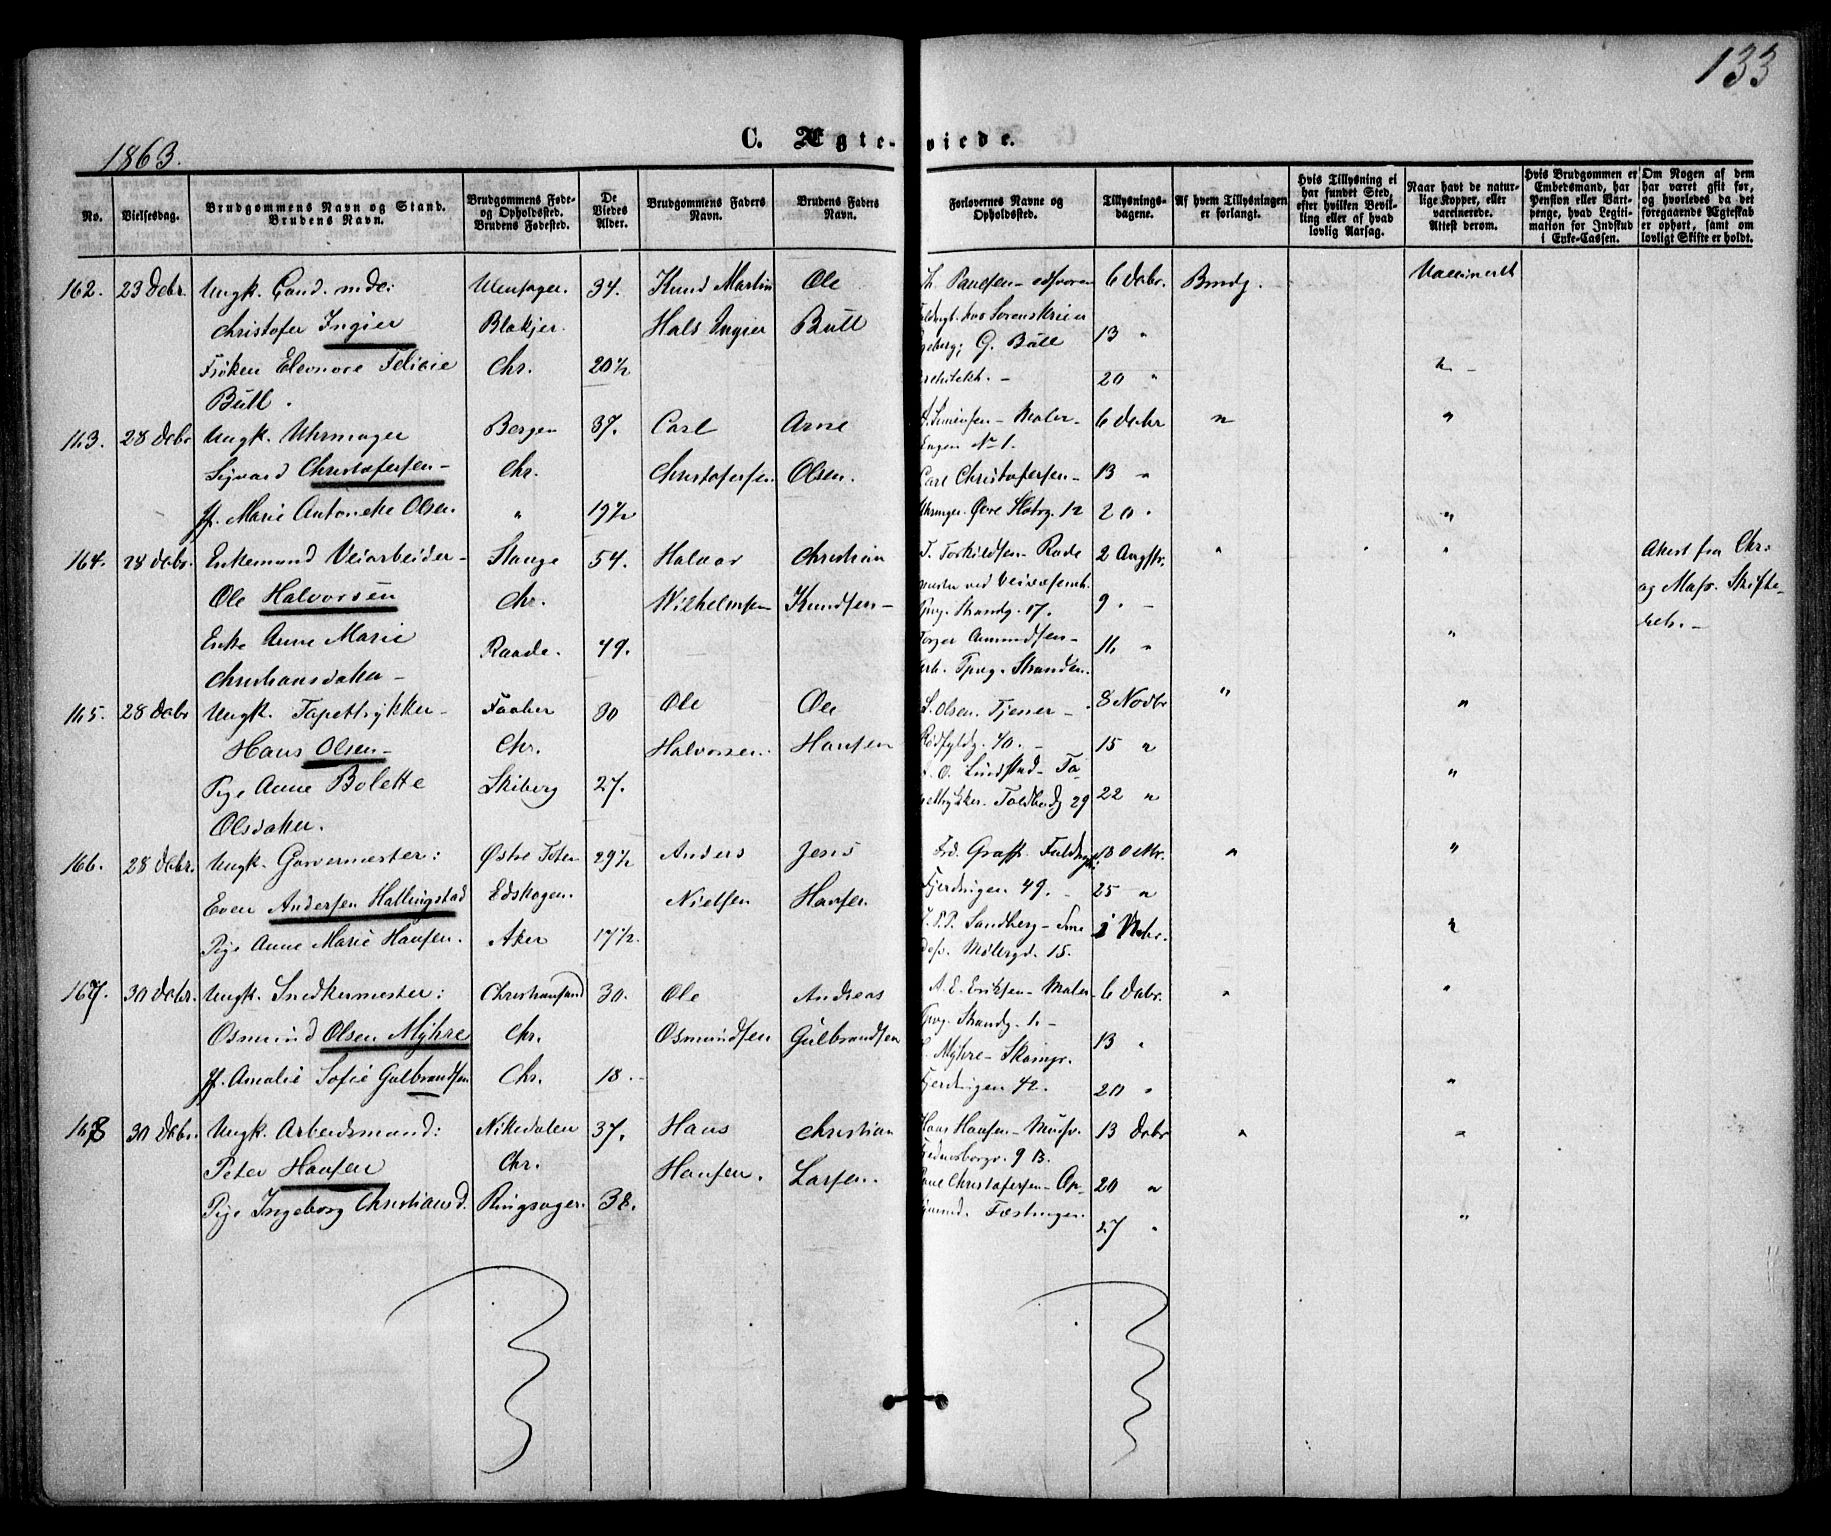 133
1863.
C. Ægte-viede.
No.
Vielsesdag.
Brudgommens Navn og Stand.
Brudens Navn.
Brudgommens Føde-
og Opholdsted.
Brudens Fødested.
De
Viedes
Alder.
Brudgommens Faders
Navn.
Brudens Faders
Navn.
Forlovernes Navne og
Opholdsted.
Tillysnings-
dagene.
Af hvem Tillysningen
er forlangt.
Hvis Tillysning ei
har fundet Sted,
efter hvilken Bevil-
ling eller af hvad
lovlig Aarsag.
Naar havt de natur-
lige Kopper, eller
vaccinerede.
Attest derom.
Hvis Brudgommen er
Embedsmand, har
Pension eller Vart-
penge, hvad Legiti-
mation for Indskud
i Enke-Cassen.
Om Nogen af dem
har været gift før,
og hvorledes da det
foregaaende Ægteskab
er ophørt, samt om
lovligt Skifte er holdt.
162. 23 Decbr. Ungk. Cand. med: Ullensager. 34. Knud Martin Ole Paulsen 6 Decbr. Brudg. Vaccineret
Christofer Ingier Blakjer. Hals Ingier Bull hos Sorenskriver 13 "
G. Bull
Frøken Eleonore Felicie Chr. 20½ 20 "
Bull.
163. 28 Decbr Ungk. Uhrmager Bergen 37. Carl Arne Simensen - Maler- 6 Decbr " "
Engen No 1.
Sigvard Christofersen- Chr. Christofersen Olsen. Carl Christofersen - 13 "
Jf. Marie Antonette Olsen. " 19½ Øvre Slotsg. 12 20 " "
164. 28 Decbr. Enkemand Veiarbeider- Stange 54. Halvor Christian T. Torkildsen- Rode 2 Augstr. " " " Attest fra Chr:
mester ved
Ole Halvorsen Chr. Wilhelmsen Knudsen- Strandg. 17. 9. - og Skifte-
Enke Anne Marie Raade. 49. Torger Amundsen- 16 " " retr.-
Christiansdatter - Strandg.
165. 28 Decbr Ungk. Tapettrykker- Faaber 30 Ole Ole L. Olsen. Tjener - 8 Novbr " "
Hans Olsen- Chr. Halvorsen. Hansen Rødfyldg. 40. - 15 "
Pige Anne Bolette Skiberg 27. Lundstad- Ta-
pettrykker. Toldbodg 29 22 " "
Olsdatter.
166. 28 Decbr. Ungk. Garvermester: Østre Toten 29½ Anders Jens Frd. Graff. Fuldmgt. 18 Octbr. " "
Even Andersen Hallingstad Edskogen. Nielsen Hansen Fjerdingen 49. - 25 "
Pige Anne Marie Hansen. Aker 17½. Sandberg - 1 Novbr. "
Møllergd. 15.
167. 30 Decbr. Ungk. Snedkermester: Christiansand 30. Ole Andreas A. E. Eriksen- Maler- 6 Decbr. " "
Osmund Olsen Myhre Chr. Osmundsen Gulbrandsen Strandg. 13 "
Myhre -
Jf. Amalie Sofie Gulbrandsen Chr. 18. - Fjerdingen 42. 20 " "
168 30 Decbr. Ungk. Arbeidsmand: Nittedalen 37. Hans Christian Hans Hansen- 13 Decbr " "
Peter Hansen Chr. Hansen. Larsen. 9 B.
Christofersen - Op- 20 "
Pige Ingeborg Christiansd. Ringsager. 38. Fæstningen. 27 " "